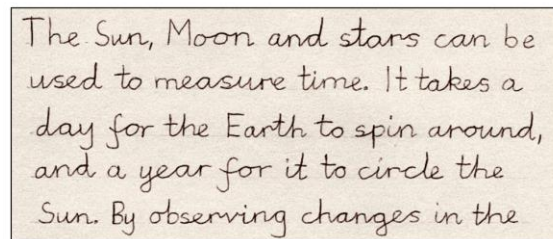 The Sun, Moon and stars can be
used to measure time. It takes a
day for the Earth to spin around,
and a year for it to circle the
Sun. By observing changes in the